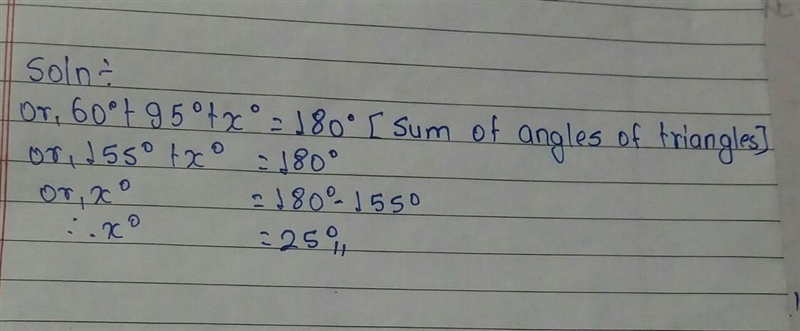 Soln ÷
or, 60° + 95° + x° = 180° [Sum of angles of triangles]
or, 155° + x° = 180°
or, x° = 180° - 155°
∴ x° = 25°,,